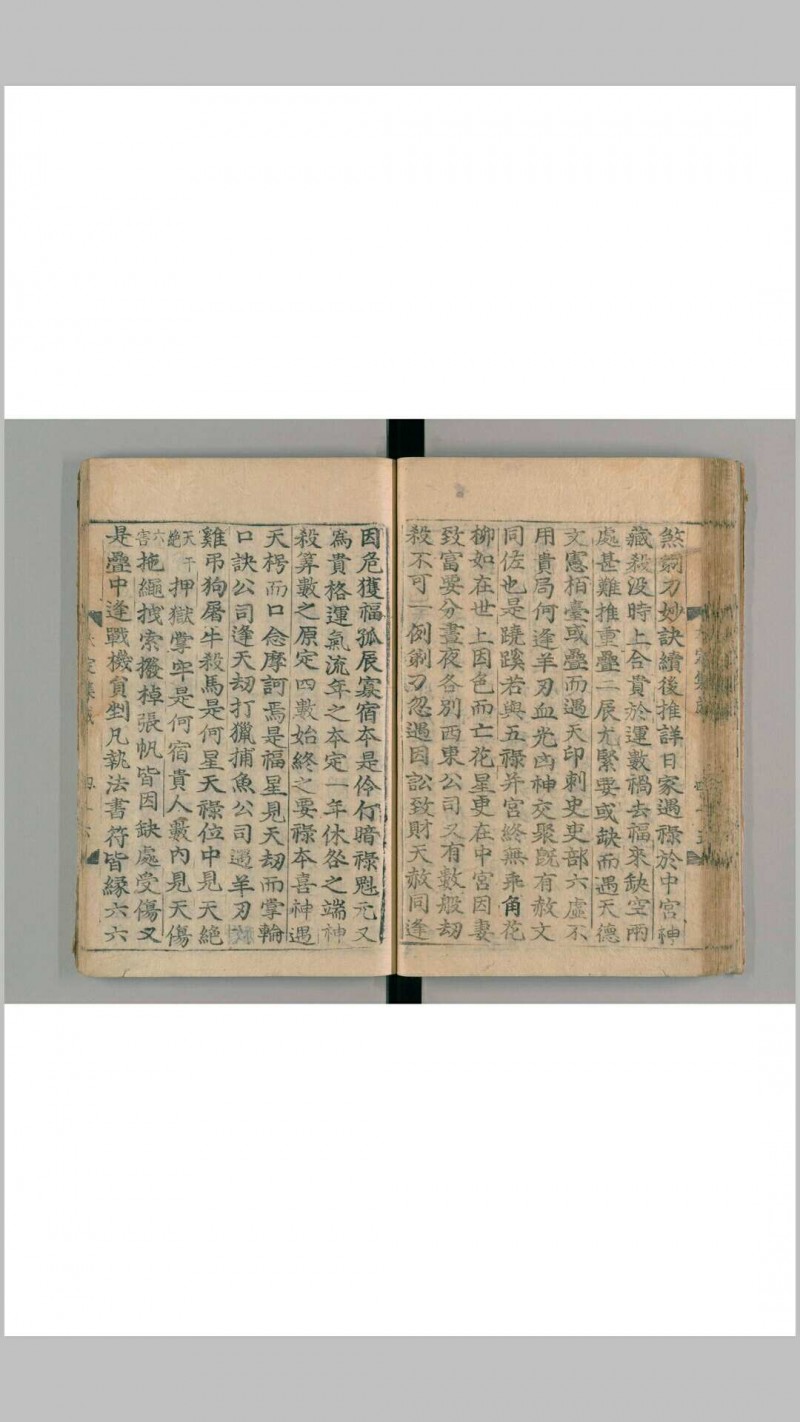 煞銅刀妙訣續後推詳日家遇祿於中宮神
藏殺没時上合貫於運數禍去福來缺空兩
處甚難推重疊二辰尤緊要或缺而遇天德
文憲栢臺或疊而遇天印刺史吏部六虛不
用貴局何逢羊刃血光凶神交聚既有赦文
同佐也是蹺蹊若與五祿并宮終無乖角花
柳如在世上因色而亡花星更在中宮因妻
致富要分晝夜各別西東公司又有數般劫
殺不可一例剣刀忽遇因訟致財天赦同逢
因危獲福孤辰寡宿本是伶仃暗祿魁元又
爲貴格運氣流年之本定一年休咎之端神
殺算數之原定四數始終之要祿本喜神遇
天枵而口念摩訶焉是福星見天劫而掌輪
口訣公司逢天劫打獵捕魚公司遇羊刃
雞吊狗屠牛殺馬是何星天祿位中見天絶
天干絶押獄掌牢是何宿貴人藪內見天傷
六害拖繩拽索撥棹張帆皆因缺處受傷又
是疊中逢戰機貟剉凡執法書符皆縁六六